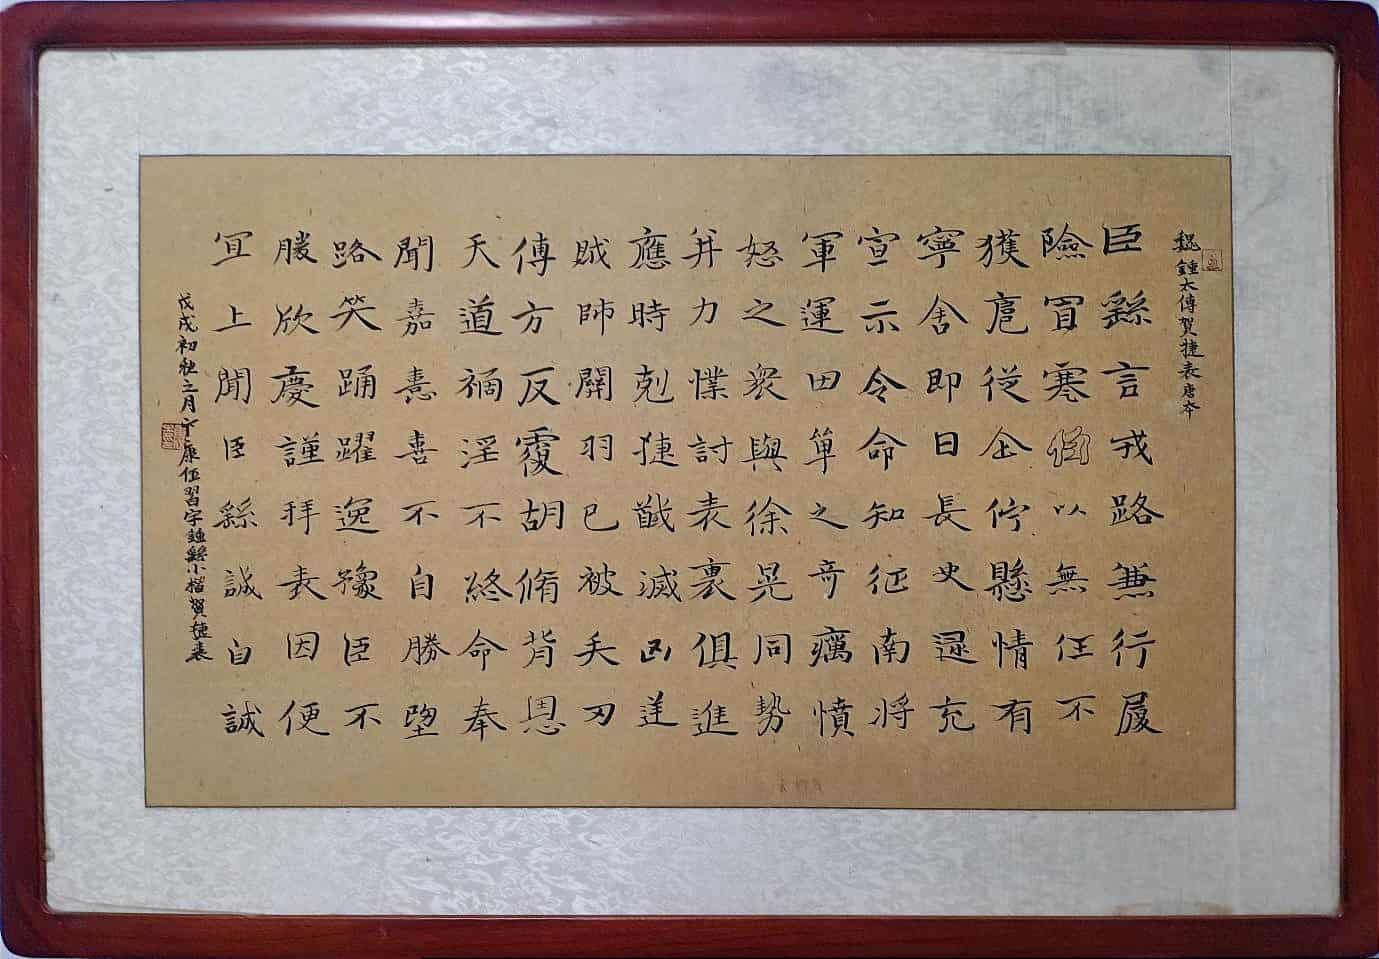 魏鍾太傅賀捷表唐本
臣繇言戎路兼行履
險冒寒以無任不
獲扈從企佇懸情有
寧舍即日長史逯充
宣示令命知征南將
軍運田單之奇癘憤
怒之衆與徐晃同勢
并力撲討表裏俱進
應時剋捷馘滅凶逆
賊帥關羽已被矢刃
傅方反覆胡脩背恩
天道禍淫不終命奉
聞嘉憙喜不自勝望
路笑踊躍逸豫臣不
勝欣慶謹拜表因便
宜上聞臣繇誠自誠
戊戌初秋月康伍習字鍾繇小楷賀捷表